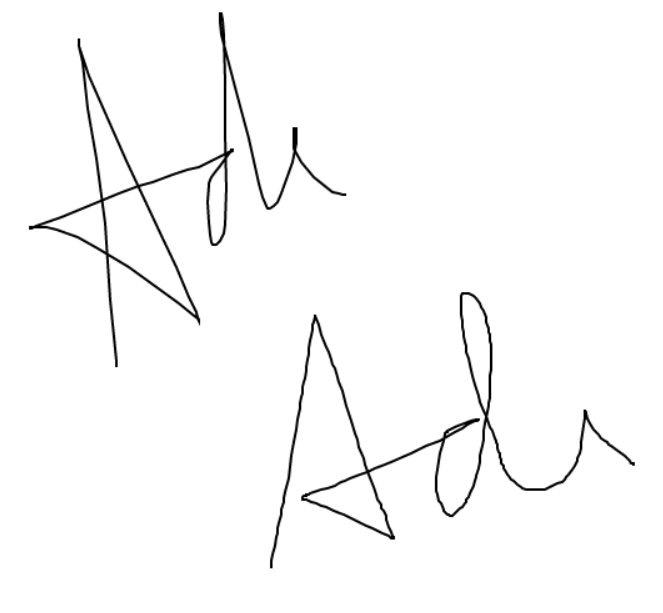 Adu
Adu